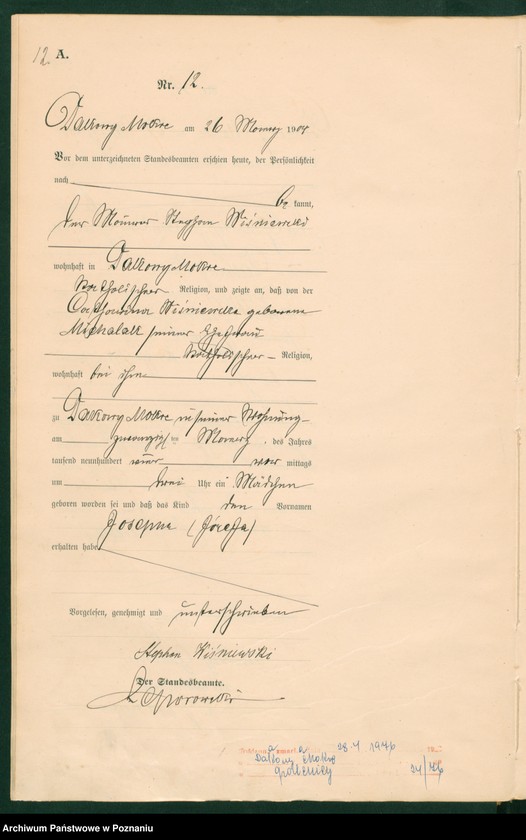 12. A.
Nr. 12.
Dakowy Mokre am 26 Maerz 1904
Vor dem unterzeichneten Standesbeamten erschien heute, der Persönlichkeit
nach
be kannt,
der Maurer Stephan Wiśniewski
wohnhaft in Dakowy Mokre
katholischer Religion, und zeigte an, daß von der
Catharina Wiśniewska geborene
Michalak seiner Ehefrau
katholischer Religion,
wohnhaft bei ihm
zu Dakowy Mokre in seiner Wohnung
am zwanzigsten Maerz des Jahres
tausend neunhundert vier vor mittags
um drei Uhr ein Mädchen
geboren worden sei und daß das Kind den Vornamen
Josepha (Józefa)
erhalten habe
Vorgelesen, genehmigt und unterschrieben
Stephan Wiśniewski
Der Standesbeamte.
28.4 1976
Dakowy Mokre
24/76
Archiwum Państwowe w Poznaniu